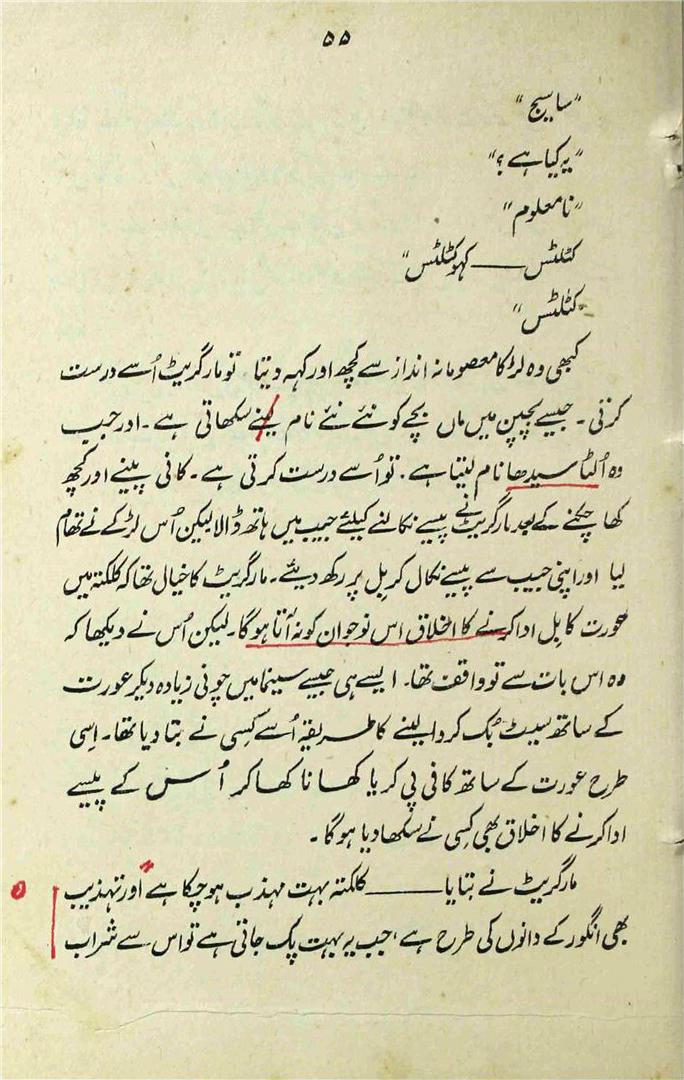 ۵۵
"ساسیج"
"یہ کیا ہے؟"
"نامعلوم"
کٹلٹس —— کہو کٹلٹس"
"کٹلٹس"
کبھی وہ لڑکا معصومانہ انداز سے کچھ اور کہہ دیتا تو مارگریٹ اُسے درست
کرتی۔ جیسے بچپن میں ماں بچے کو نئے نئے نام لینے سکھاتی ہے۔ اور جب
وہ اُلٹا سیدھا نام لیتا ہے۔ تو اُسے درست کرتی ہے۔ کافی پینے اور کچھ
کھا چکنے کے بعد مارگریٹ نے پیسے نکالنے کیلئے جیب میں ہاتھ ڈالا لیکن اُس لڑکے نے تھام
لیا اور اپنی جیب سے پیسے نکال کر بل پر رکھ دیئے۔ مارگریٹ کا خیال تھا کہ کلکتہ میں
عورت کا بل ادا کرنے کا اخلاق اس نوجوان کو نہ آتا ہوگا۔ لیکن اُس نے دیکھا کہ
وہ اس بات سے تو واقف تھا۔ ایسے ہی جیسے سینما میں چونی زیادہ دیکر عورت
کے ساتھ سیٹ بُک کروا لینے کا طریقہ اُسے کسِی نے بتا دیا تھا۔ اِسی
طرح عورت کے ساتھ کافی پی کر یا کھانا کھا کر اُس کے پیسے
ادا کرنے کا اخلاق بھی کسِی نے سکھا دیا ہوگا۔
مارگریٹ نے بتایا —— کلکتہ بہت مہذب ہو چکا ہے اور تہذیب
بھی انگور کے دانوں کی طرح ہے، جب یہ بہت پک جاتی ہے تو اس سے شراب